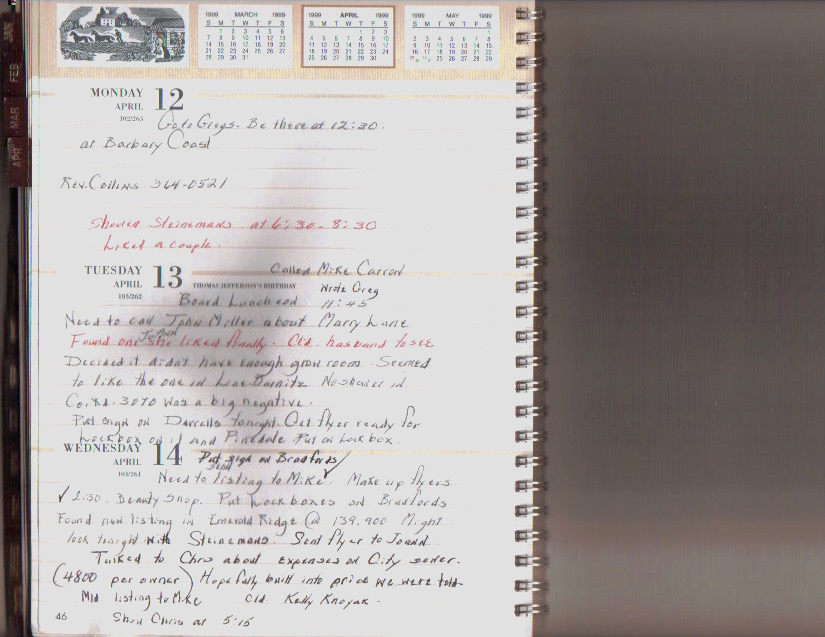 1999 MARCH 1999
S M T W T F S
1 2 3 4 5 6
7 8 9 10 11 12 13
14 15 16 17 18 19 20
21 22 23 24 25 26 27
28 29 30 31
1999 APRIL 1999
S M T W T F S
1 2 3
4 5 6 7 8 9 10
11 12 13 14 15 16 17
18 19 20 21 22 23 24
25 26 27 28 29 30
1999 MAY 1999
S M T W T F S
1
2 3 4 5 6 7 8
9 10 11 12 13 14 15
16 17 18 19 20 21 22
23/30 24/31 25 26 27 28 29
JAN
FEB
MAR
APR
MONDAY
APRIL 12
102/263
Go to Gregs. Be there at 12:30.
at Barbary Coast
Rev. Collins 364-0521
Showed Steinemans at 6:30-8:30
Liked a couple.
TUESDAY
APRIL 13
103/262
THOMAS JEFFERSON'S BIRTHDAY
Called Mike Carron
Wrote Greg
Board Luncheon 11:45
Need to call John Miller about Marry Lane
JoAnn
Found one she liked finally. Cld. husband to see
Decided it didn't have enough grow room. Seemed
to like the one in No shower in
3070 was a big negative.
Put sign on Darrells tonight. Get flyer ready for
Lockbox on it and Pinedale Put on Lockbox.
WEDNESDAY
APRIL 14
104/261
Put sign on Bradfords
send
Need to listing to Mike. Make up flyers
✓ 2:30. Beauty Shop. Put Lockboxes on Bradfords
Found new listing in Emerald Ridge @ 139,900 Might
look tonight with Steinemans. Sent flyer to Joann.
Talked to Chris about expenses on City sewer.
(4800 per owner) Hopefully built into price we were told
listing to Mike Cld. Kelly Knoyak.
46 Show Chris at 5:15